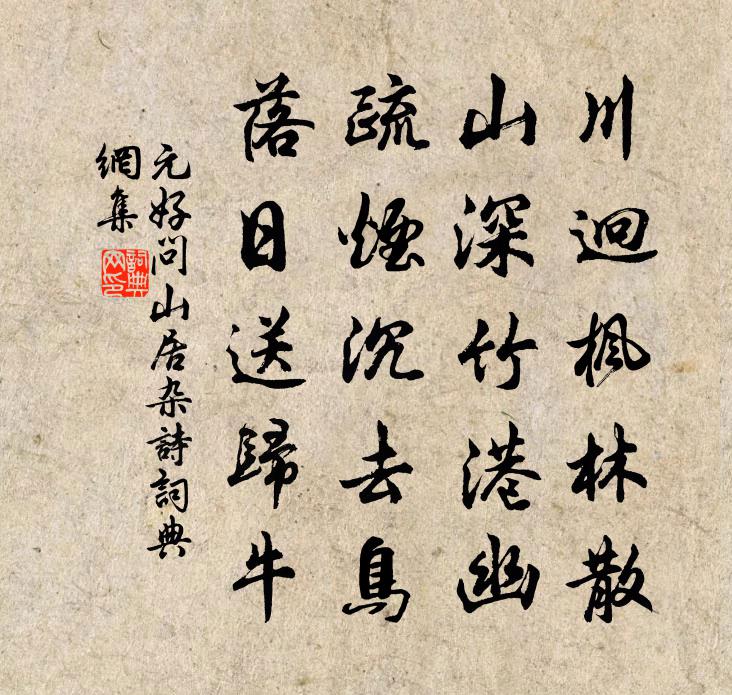 川迥楓林散
山深竹港幽
疏煙沉去鳥
落日送歸牛
元好问山居杂詩詞典
網集
詞典
网印